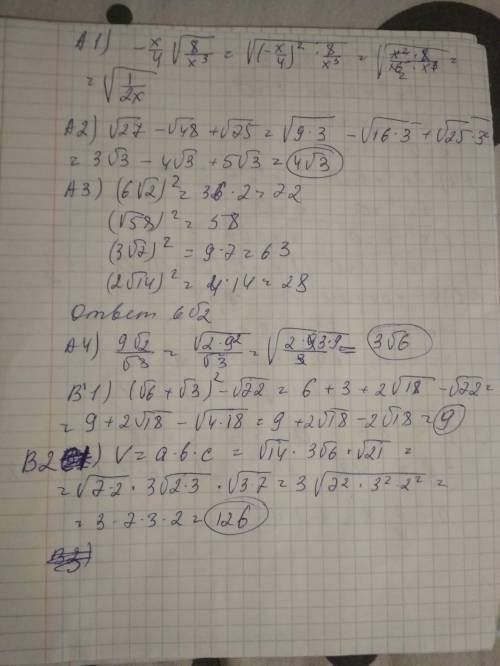 A1) -x/4 √(8/x³) = √((-x/4)² · 8/x³) = √(x² · 8 / 16 · x³) =
= √(1/2x)
A2) √27 - √48 + √75 = √(9·3) - √(16·3) + √(25·3) =
= 3√3 - 4√3 + 5√3 = 4√3
A3) (6√2)² = 36 · 2 = 72
(√58)² = 58
(3√7)² = 9·7 = 63
(2√14)² = 4·14 = 28
Ответ 6√2
A4) 9√2/√3 = √(2·9²)/√3 = √(2·9·3·9/3) = 3√6
B1) (√6 + √3)² - √72 = 6 + 3 + 2√18 - √72 =
= 9 + 2√18 - √(4·18) = 9 + 2√18 - 2√18 = 9
B2) V = a·b·c = √14 · 3√6 · √21 =
= √(7·2) · 3√(2·3) · √(3·7) = 3√(7² · 3² · 2²) =
= 3 · 7 · 3 · 2 = 126